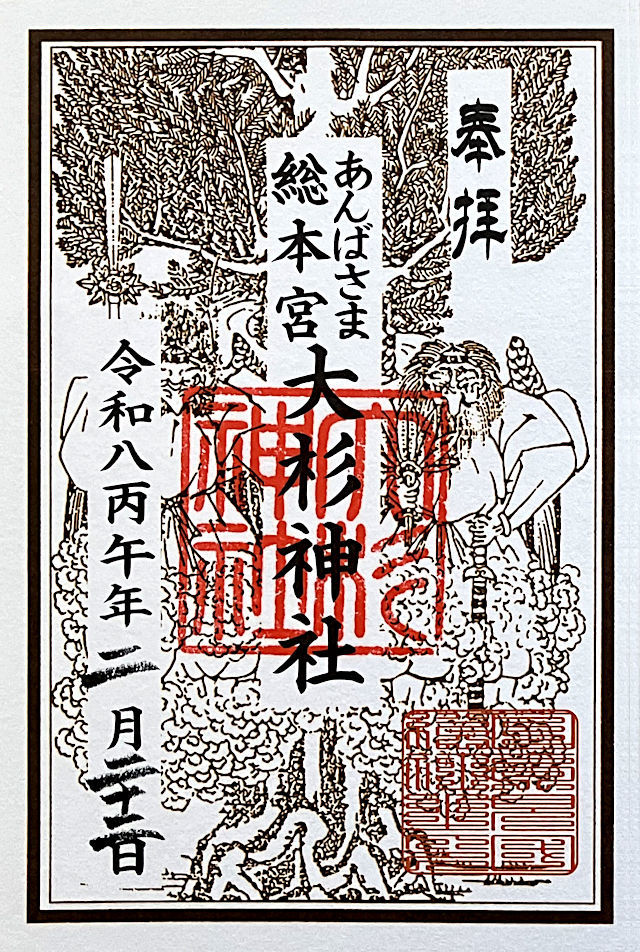 奉拝
あんばさま
総本宮
大杉神社
令和八丙午年二月二十二日